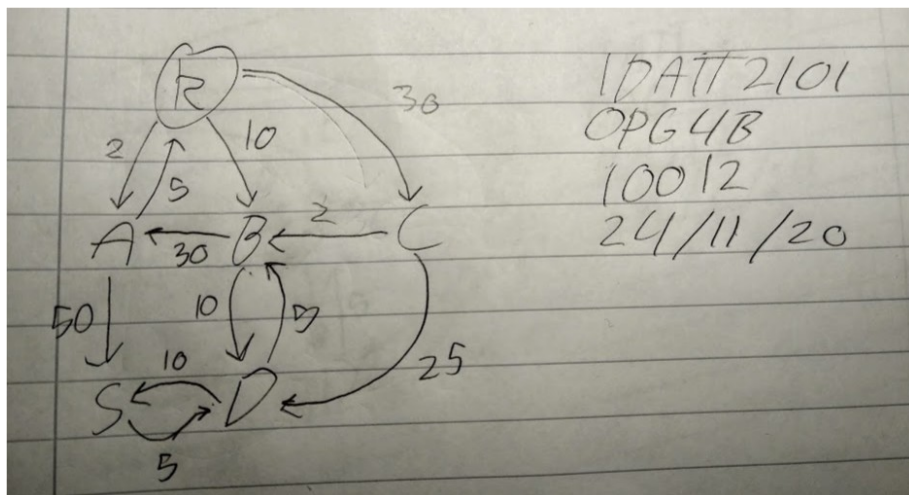 R
30
2
10
5
2
A
30
B
C
50
10
5
10
25
S
D
5
IDATT2101
OPG4B
10012
24/11/20